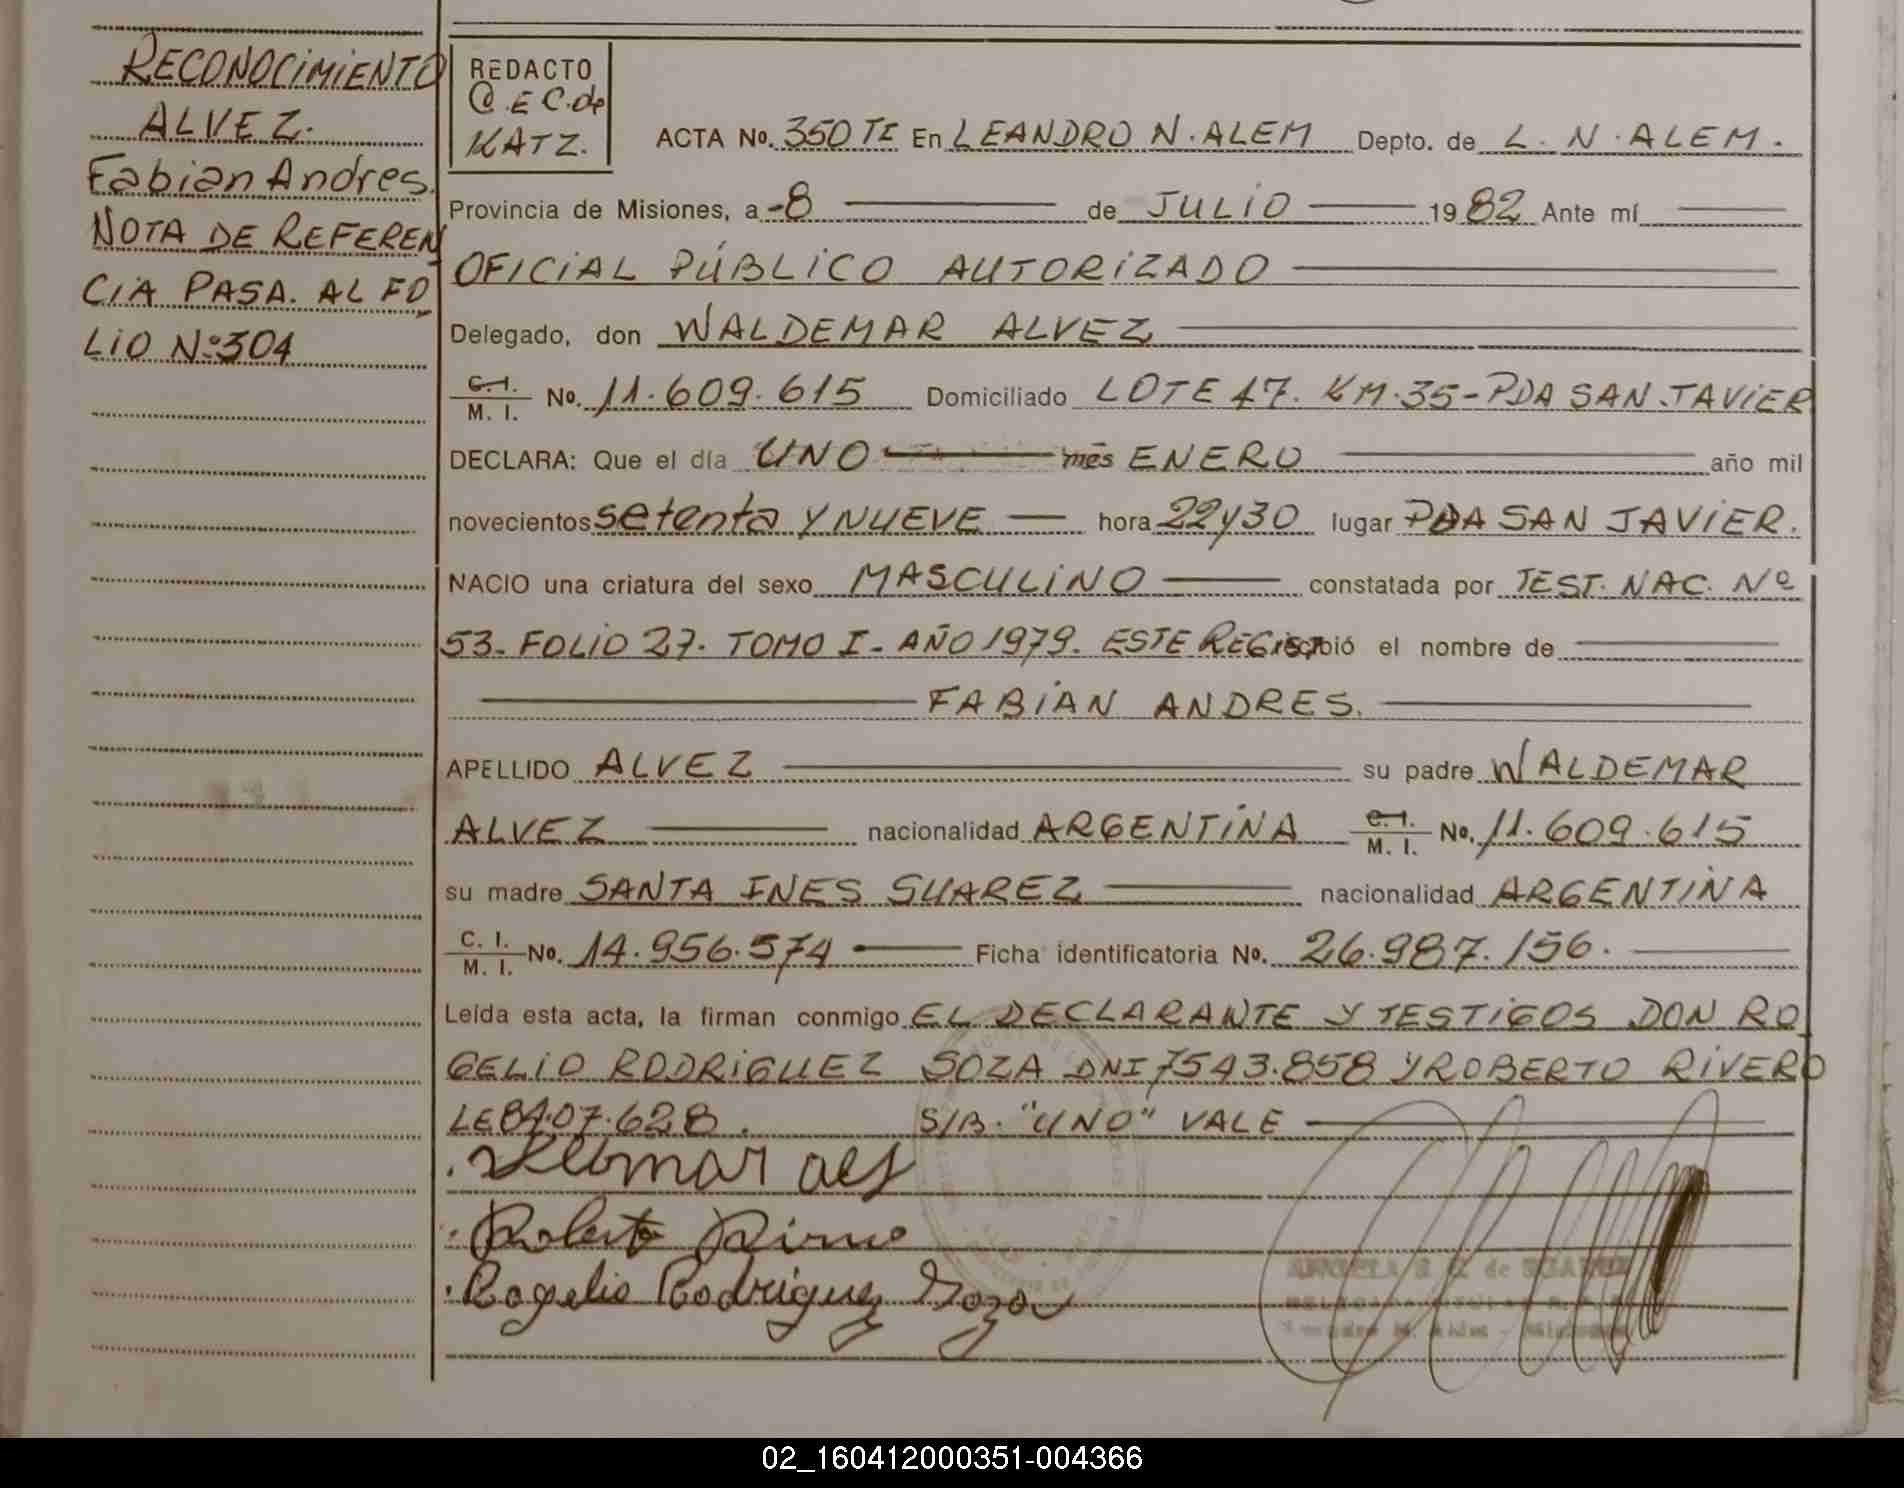 RECONOCIMIENTO
ALVEZ.
Fabian Andres.
NOTA DE REFEREN
CIA PASA. AL FO
LIO Nº304
REDACTO
@.E C.de
KATZ.
ACTA No. 350 TI En LEANDRO N. ALEM Depto. de L. N. ALEM.
Provincia de Misiones, a -8 de JULIO 1982 Ante mí
OFICIAL PÚBLICO AUTORIZADO
Delegado, don WALDEMAR ALVEZ
C. I. / M. I. No. 11.609.615 Domiciliado LOTE 17. KM.35-PDA SAN JAVIER
DECLARA: Que el día UNO mes ENERO año mil
novecientos setenta Y NUEVE hora 22y30 lugar PDA SAN JAVIER.
NACIO una criatura del sexo MASCULINO constatada por TEST. NAC. Nº
53- FOLIO 27. TOMO I- AÑO 1979. ESTE REGIST bió el nombre de
FABIAN ANDRES.
APELLIDO ALVEZ su padre WALDEMAR
ALVEZ nacionalidad ARGENTINA C. I. / M. I. No. 11.609.615
su madre SANTA INES SUAREZ nacionalidad ARGENTINA
C. I. / M. I. No. 14.956.574 Ficha identificatoria No. 26.987.156.
Leída esta acta, la firman conmigo EL DECLARANTE Y TESTIGOS DON RO
GELIO RODRIGUEZ SOZA DNI 7543.858 Y ROBERTO RIVERO
LE 8407.628. S/B. "UNO" VALE
Roberto Rivero
Rogelio Rodriguez Soza
02_160412000351-004366